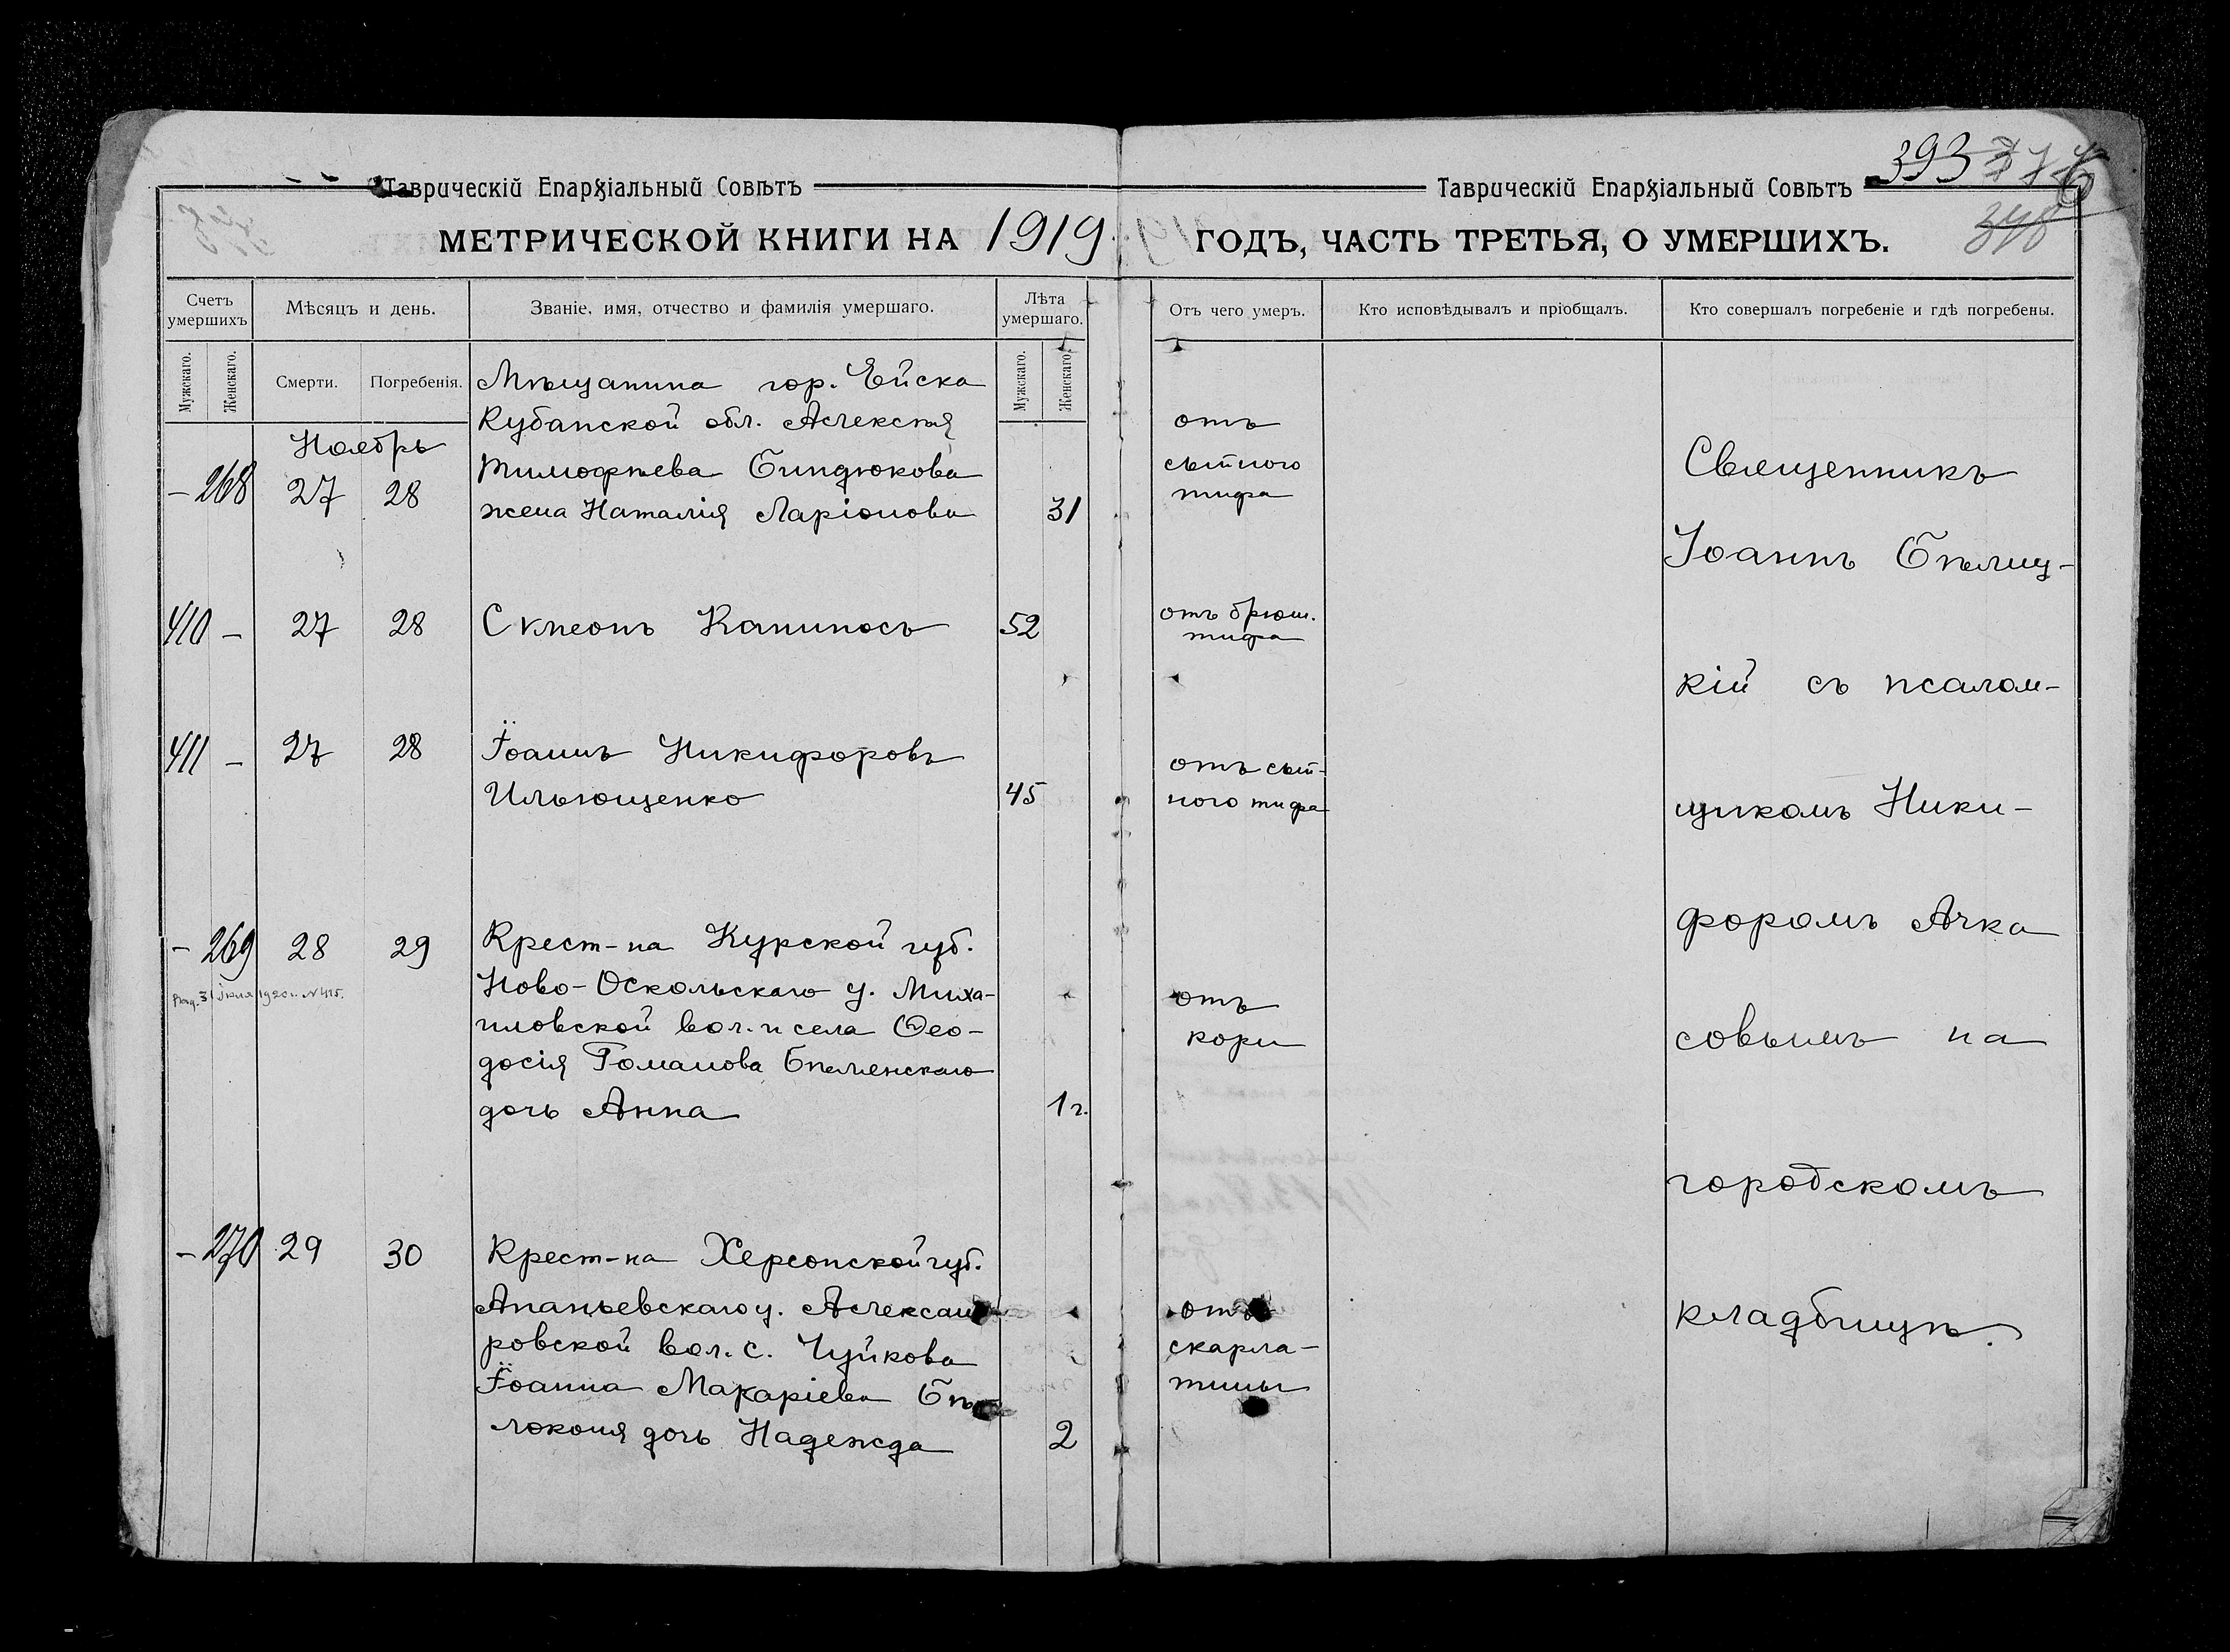 Таврическій Епархіальный Совѣтъ
Таврическій Епархіальный Совѣтъ
393
МЕТРИЧЕСКОЙ КНИГИ НА 1919
ГОДЪ, ЧАСТЬ ТРЕТЬЯ, О УМЕРШИХЪ.
348
Счетъ умершихъ
Мѣсяцъ и день.
Званіе, имя, отчество и фамилія умершаго.
Лѣта умершаго.
Отъ чего умеръ.
Кто исповѣдывалъ и пріобщалъ.
Кто совершалъ погребеніе и гдѣ погребены.
Мужскаго.
Женскаго.
Смерти.
Погребенія.
Мужскаго.
Женскаго.
Ноябрь
– 268 27 28
Мѣщанина гор. Ейска
Кубанской обл. Алексѣя
Тимофѣева Биндюкова
жена Наталія Ларіонова
31
отъ
сыпного
тифа
410 – 27 28
Сѵмеонъ Капиносъ
52
отъ брюш.
тифа
411 – 27 28
Іоаннъ Никифоровъ
Ильющенко
45
отъ сып-
ного тифа
– 269 28 29
1920 г. N 415.
Крест-на Курской губ.
Ново-Оскольскаго у. Миха-
иловской вол. и села Ѳео-
досія Романова Бѣленскаго
дочь Анна
1 г.
отъ
кори
– 270 29 30
Крест-на Херсонской губ.
Ананьевскаго у. Александ-
ровской вол. с. Чуйкова
Іоанна Макаріева Бѣ-
локоня дочь Надежда
2
отъ
скарла-
тины
Священникъ
Іоаннъ Бѣлиц-
кій съ псалом-
щикомъ Ники-
форомъ Ачка
совымъ на
городскомъ
кладбищѣ.